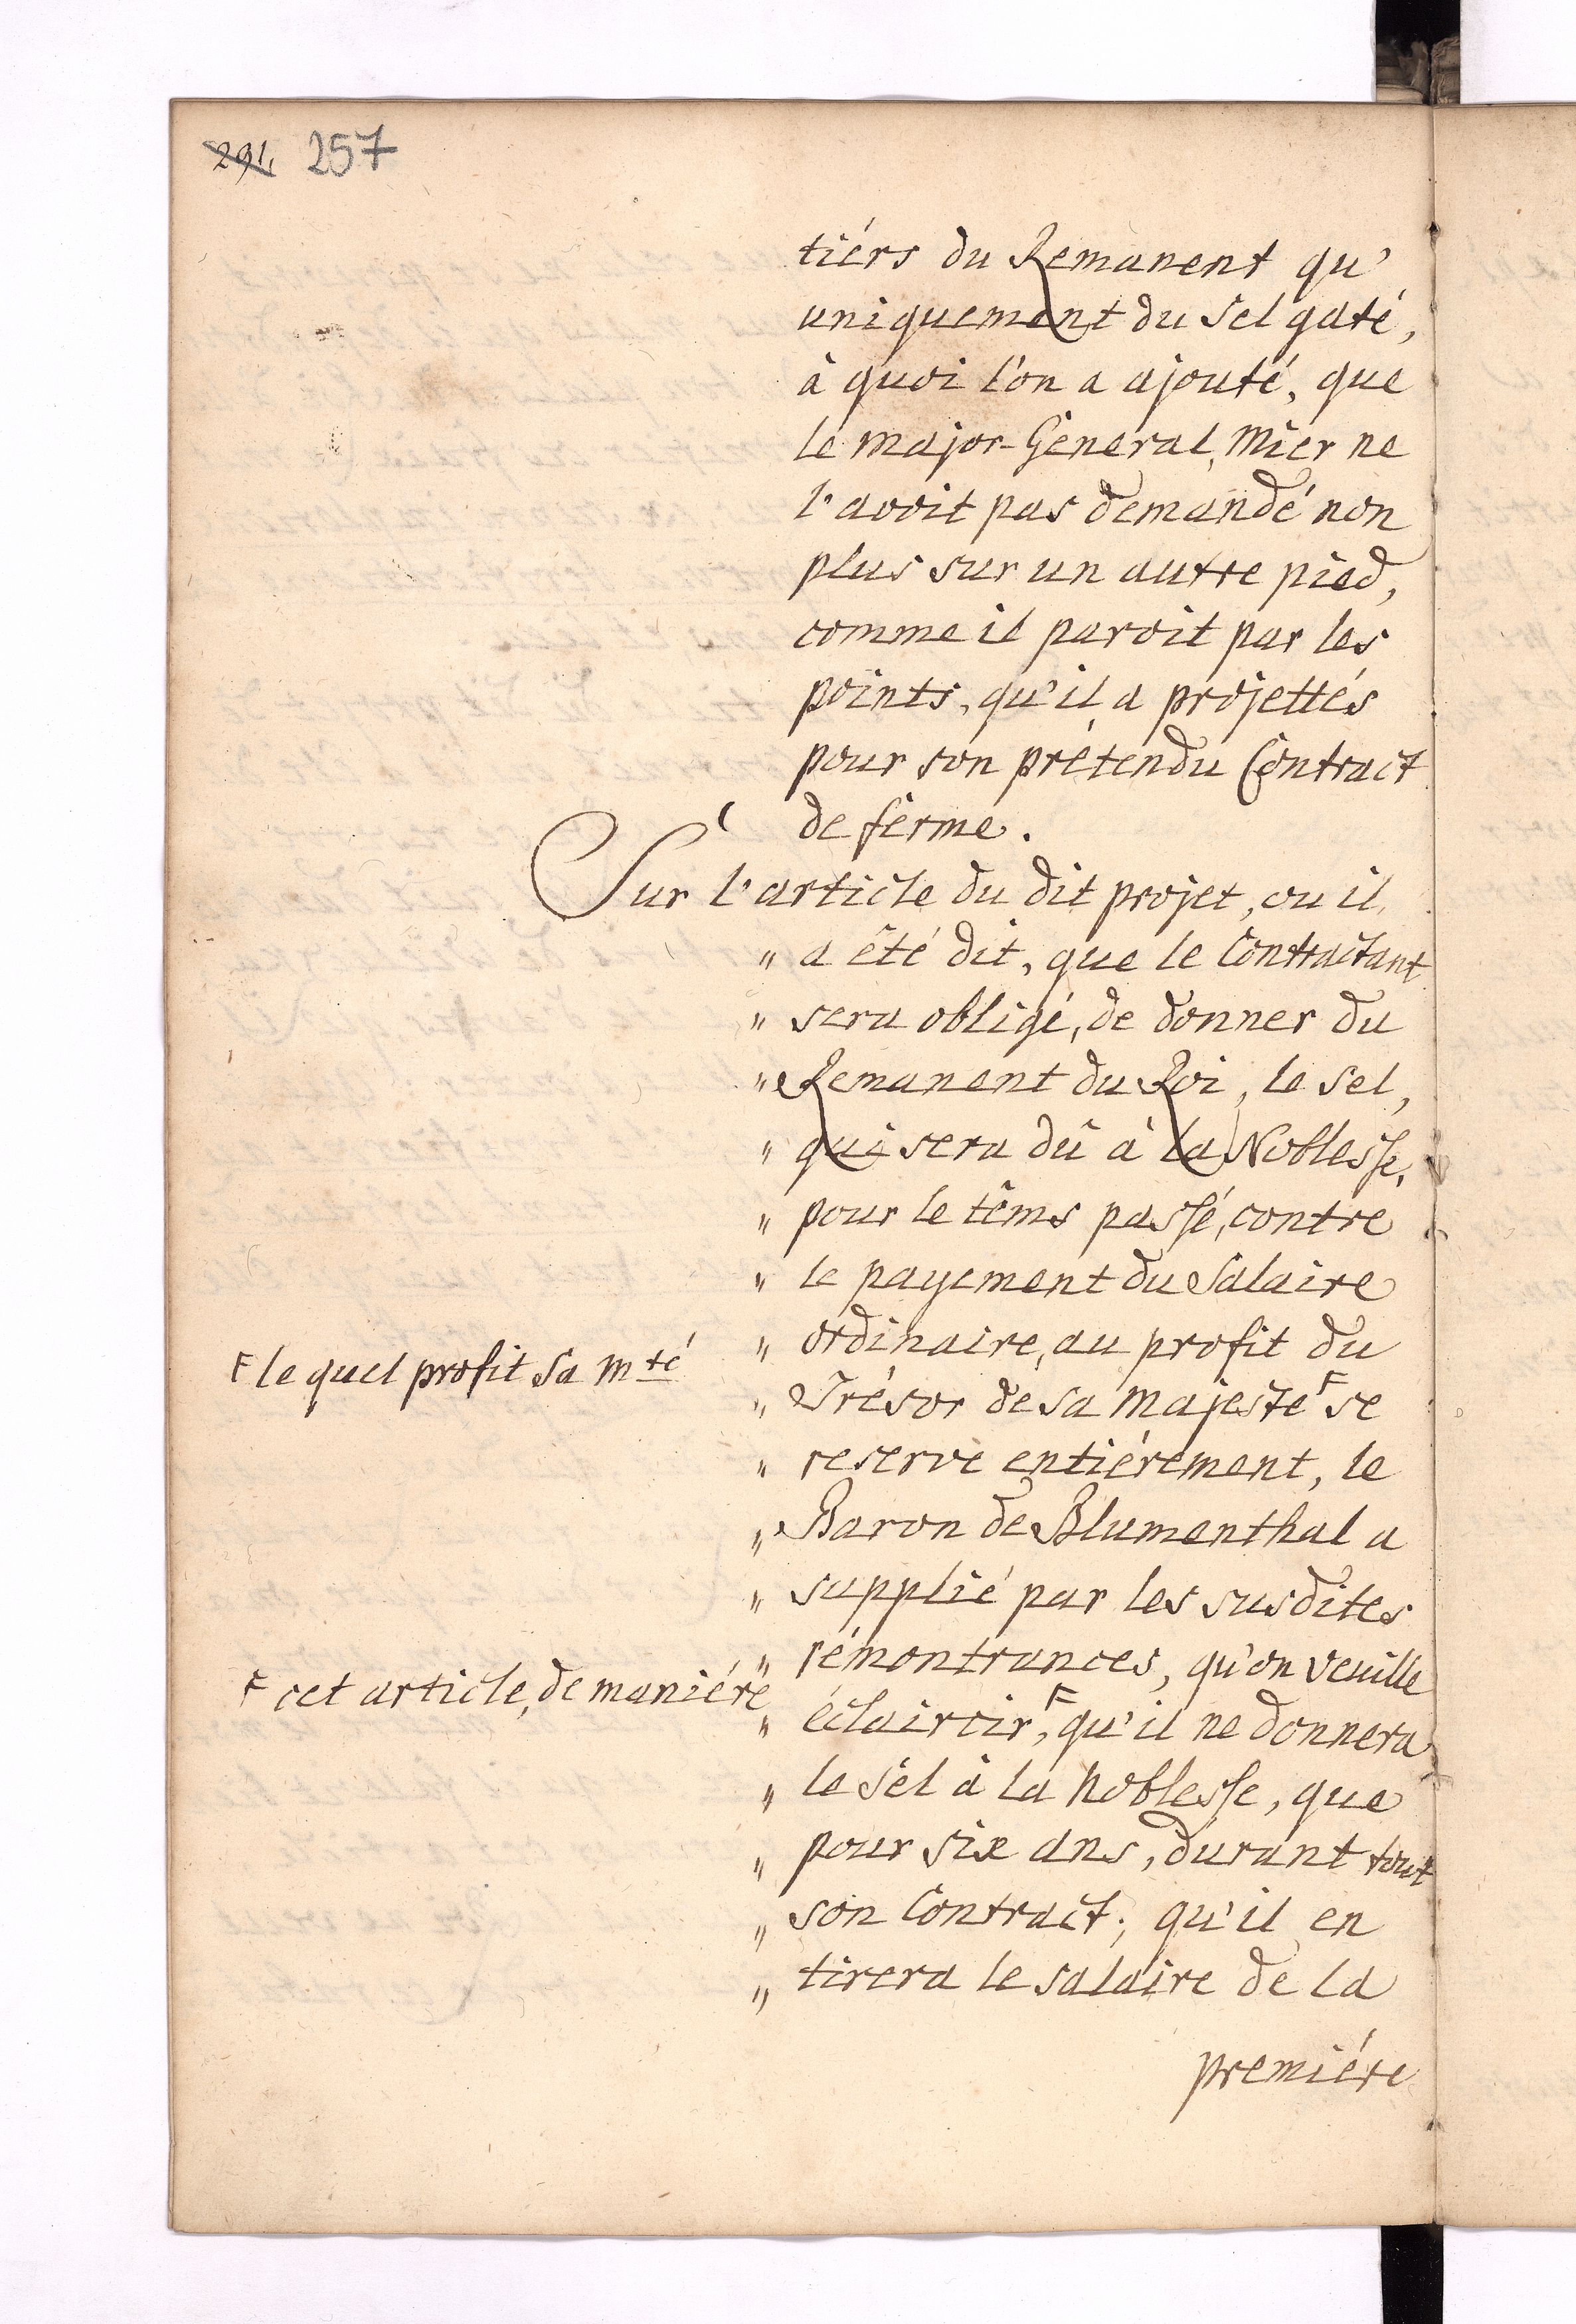 291. 257
tiérs du Remanent qu'
uniquement du Sel gaté,
à quoi l'on a ajouté, que
le Major-Géneral Mier ne
l'avoit pas demandé non
plus sur un autre pied,
comme il paroit par les
points, qu'il a projettés
pour son prétendu Contract
de ferme.
Sur l'article du dit projet, ou il
" a été dit, que le Contractant
" sera obligé, de donner du
" Remanent du Roi, le sel,
" qui sera dû à la Noblesse,
" pour le têms passé, contre
" le payement du Salaire
" ordinaire, au profit du
F le quel profit Sa Mté
" Trésor de Sa Majesté F se
" reserve entiérement, le
" Baron de Blumenthal a
" supplié par les susdites
" rémontrances, qu'on veuille
F cet article, de maniére
" éclaircir, F qu'il ne donnera
" le Sel à la Noblesse, que
" pour six ans, durant tout
" son Contract; qu'il en
" tirera le salaire de la
premiére